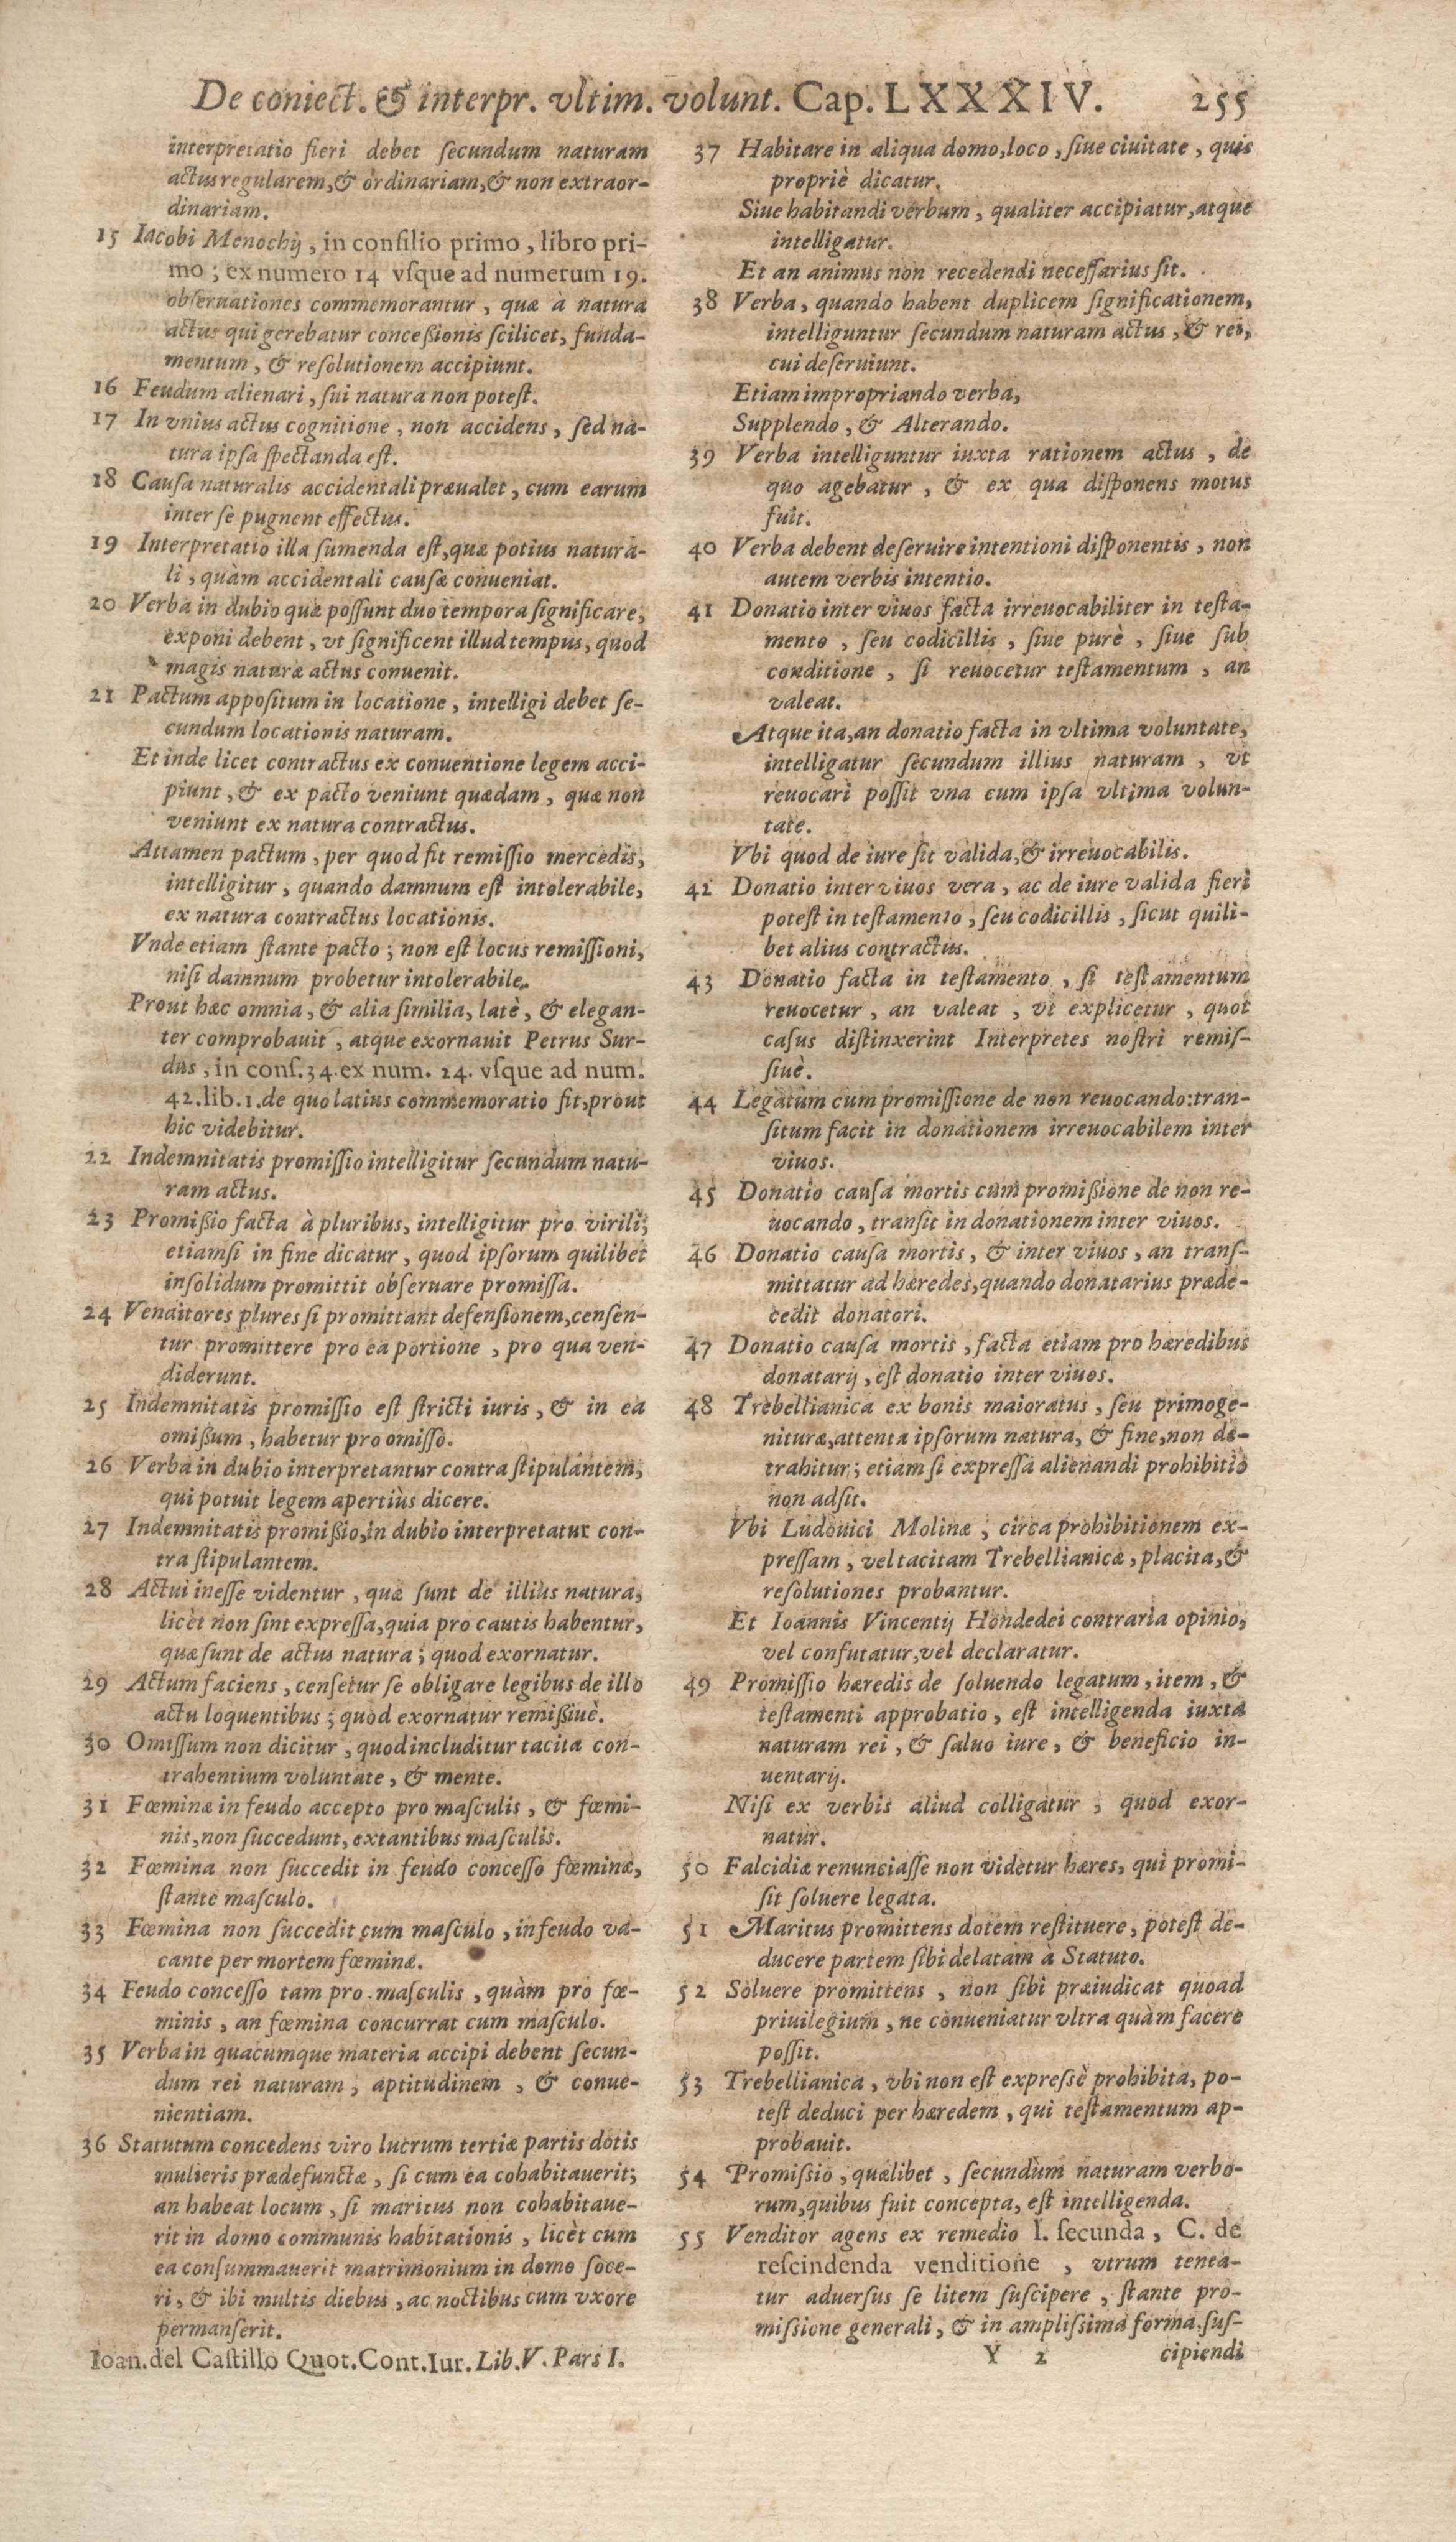 De coniect. & interpr. vltim. volunt. Cap. LXXXXIV. 255
interpretatio fieri debet ſecundum naturam
actus regularem,& ordinariam,& non extraor-
dinariam.
15 Iacobi Menochij, in conſilio primo, libro pri-
mo ; ex numero 14 vſque ad numerum 19.
obſeruationes commemorantur, quæ à natura
actus qui gerebatur conceßionis ſcilicet, funda-
mentum, & reſolutionem accipiunt.
16 Feudum alienari, ſui natura non poteſt.
17 In vnius actus cognitione, non accidens, ſed na-
tura ipſa ſpectanda eſt.
18 Cauſa naturalis accidentali præualet, cum earum
inter ſe pugnent effectus.
19 Interpretatio illa ſumenda eſt,quæ potius natura-
li, quàm accidentali cauſæ conueniat.
20 Verba in dubio quæ poſſunt duo tempora ſignificare,
exponi debent, vt ſignificent illud tempus, quod
magis naturæ actus conuenit.
21 Pactum appoſitum in locatione, intelligi debet ſe-
cundum locationis naturam.
Et inde licet contractus ex conuentione legem acci-
piunt, & ex pacto veniunt quædam, quæ non
veniunt ex natura contractus.
Attamen pactum, per quod fit remiſſio mercedis,
intelligitur, quando damnum eſt intolerabile,
ex natura contractus locationis.
Vnde etiam ſtante pacto ; non eſt locus remiſſioni,
niſi damnum probetur intolerabile.
Prout hæc omnia, & alia ſimilia, latè, & elegan-
ter comprobauit, atque exornauit Petrus Sur-
dus, in conſ.34.ex num. 24. vſque ad num.
42.lib.1.de quo latius commemoratio fit,prout
hic videbitur.
22 Indemnitatis promiſſio intelligitur ſecundum natu-
ram actus.
23 Promißio facta à pluribus, intelligitur pro virili;
etiamſi in fine dicatur, quod ipſorum quilibet
inſolidum promittit obſeruare promiſſa.
24 Venditores plures ſi promittant defenſionem,cenſen-
tur promittere pro ea portione, pro qua ven-
diderunt.
25 Indemnitatis promiſſio eſt ſtricti iuris, & in ea
omißum, habetur pro omiſſo.
26 Verba in dubio interpretantur contra ſtipulantem,
qui potuit legem apertiùs dicere.
27 Indemnitatis promißio,in dubio interpretatur con-
tra ſtipulantem.
28 Actui ineſſe videntur, quæ ſunt de illius natura,
licèt non ſint expreſſa,quia pro cautis habentur,
quæ ſunt de actus natura ; quod exornatur.
29 Actum faciens, cenſetur ſe obligare legibus de illo
actu loquentibus ; quod exornatur remißiuè.
30 Omiſſum non dicitur, quod includitur tacita con-
trahentium voluntate, & mente.
31 Fœminæ in feudo accepto pro maſculis, & fœmi-
nis,non ſuccedunt, extantibus maſculis.
32 Fœmina non ſuccedit in feudo conceſſo fœminæ,
ſtante maſculo.
33 Fœmina non ſuccedit cum maſculo, in feudo va-
cante per mortem fœminæ.
34 Feudo conceſſo tam pro maſculis, quàm pro fœ-
minis, an fœmina concurrat cum maſculo.
35 Verba in quacumque materia accipi debent ſecun-
dum rei naturam, aptitudinem, & conue-
nientiam.
36 Statutum concedens viro lucrum tertiæ partis dotis
mulieris prædefunctæ, ſi cum ea cohabitauerit;
an habeat locum, ſi maritus non cohabitaue-
rit in domo communis habitationis, licèt cum
ea conſummauerit matrimonium in domo ſoce-
ri, & ibi multis diebus, ac noctibus cum vxore
permanſerit.
Ioan.del Caſtillo Quot.Cont.Iur.Lib.V.Pars I.
37 Habitare in aliqua domo,loco, ſiue ciuitate, quis
propriè dicatur.
Siue habitandi verbum, qualiter accipiatur,atque
intelligatur.
Et an animus non recedendi neceſſarius ſit.
38 Verba, quando habent duplicem ſignificationem,
intelliguntur ſecundum naturam actus, & rei,
cui deſeruiunt.
Etiam impropriando verba,
Supplendo, & Alterando.
39 Verba intelliguntur iuxta rationem actus, de
quo agebatur, & ex qua diſponens motus
fuit.
40 Verba debent deſeruire intentioni diſponentis, non
autem verbis intentio.
41 Donatio inter viuos facta irreuocabiliter in teſta-
mento, ſeu codicillis, ſiue purè, ſiue ſub
conditione, ſi reuocetur teſtamentum, an
valeat.
Atque ita,an donatio facta in vltima voluntate,
intelligatur ſecundum illius naturam, vt
reuocari poſſit vna cum ipſa vltima volun-
tate.
Vbi quod de iure ſit valida,& irreuocabilis.
42 Donatio inter viuos vera, ac de iure valida fieri
poteſt in teſtamento, ſeu codicillis, ſicut quili-
bet alius contractus.
43 Donatio facta in teſtamento, ſi teſtamentum
reuocetur, an valeat, vt explicetur, quot
caſus diſtinxerint Interpretes noſtri remiſ-
ſiuè.
44 Legatum cum promiſſione de non reuocando:tran-
ſitum facit in donationem irreuocabilem inter
viuos.
45 Donatio cauſa mortis cum promißione de non re-
uocando, tranſit in donationem inter viuos.
46 Donatio cauſa mortis, & inter viuos, an tranſ-
mittatur ad hæredes,quando donatarius præde-
cedit donatori.
47 Donatio cauſa mortis, facta etiam pro hæredibus
donatarij, eſt donatio inter viuos.
48 Trebellianica ex bonis maioratus, ſeu primoge-
nituræ,attenta ipſorum natura, & fine,non de-
trahitur; etiam ſi expreſſa alienandi prohibitio
non adſit.
Vbi Ludouici Molinæ, circa prohibitionem ex-
preſſam, vel tacitam Trebellianicæ, placita,&
reſolutiones probantur.
Et Ioannis Vincentij Hondedei contraria opinio,
vel confutatur,vel declaratur.
49 Promiſſio hæredis de ſoluendo legatum, item, &
teſtamenti approbatio, eſt intelligenda iuxta
naturam rei, & ſaluo iure, & beneficio in-
uentarij.
Niſi ex verbis aliud colligatur ; quod exor-
natur.
50 Falcidiæ renunciaſſe non videtur hæres, qui promi-
ſit ſoluere legata.
51 Maritus promittens dotem reſtituere, poteſt de-
ducere partem ſibi delatam à Statuto.
52 Soluere promittens, non ſibi præiudicat quoad
priuilegium, ne conueniatur vltra quàm facere
poſſit.
53 Trebellianica, vbi non eſt expreſsè prohibita, po-
teſt deduci per hæredem, qui teſtamentum ap-
probauit.
54 Promiſsio, quælibet, ſecundùm naturam verbo-
rum,quibus fuit concepta, eſt intelligenda.
55 Venditor agens ex remedio l. ſecunda, C. de
reſcindenda venditione, vtrum tenea-
tur aduerſus ſe litem ſuſcipere, ſtante pro-
miſsione generali, & in ampliſsima forma.ſuſ-
Y 2 cipiendi